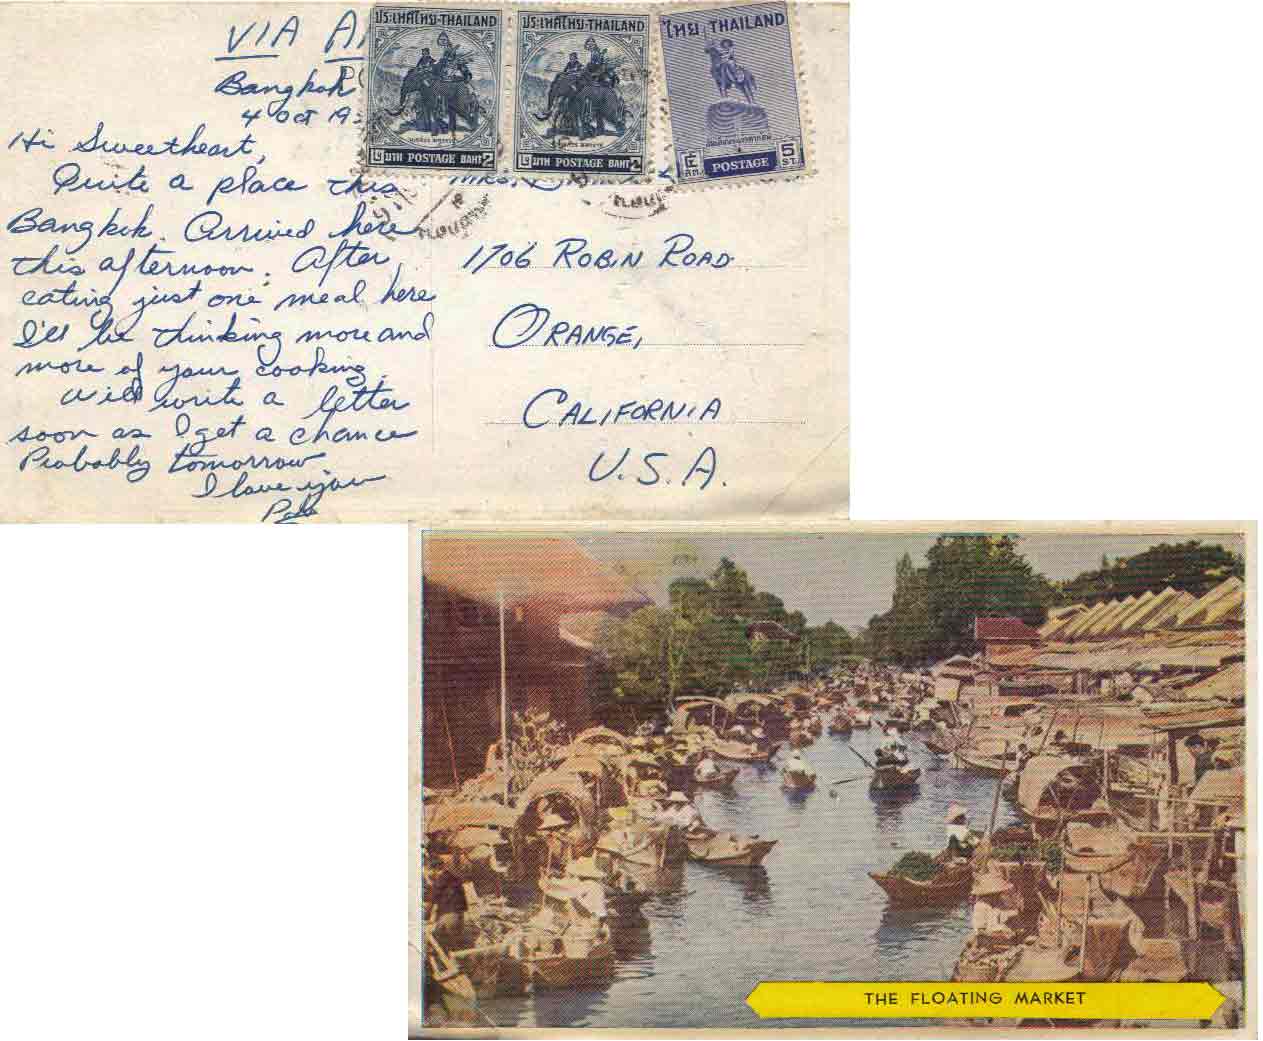 VIA
Bangkok
4 Oct 19
Hi Sweetheart,
Quite a place this
Bangkok. Arrived here
this afternoon. After
eating just one meal here
I'll be thinking more and
more of your cooking.
Will write a letter
soon as I get a chance
Probably tomorrow
I love you
ประเทศไทย-THAILAND
๒ บาท POSTAGE BAHT 2
ประเทศไทย-THAILAND
๒ บาท POSTAGE BAHT 2
ไทย THAILAND
๕ สต. POSTAGE 5 ST.
MRS.
1706 ROBIN ROAD
ORANGE,
CALIFORNIA
U.S.A.
THE FLOATING MARKET